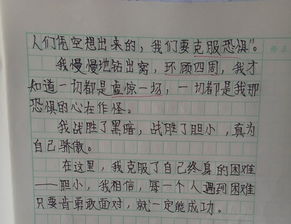 人们凭空想出来的，我们要克服恐惧”。
我慢慢地钻出窝，环顾四周，我才
知道一切都是虚惊一场，一切都是我那
恐惧的心在作怪。
我战胜了黑暗，战胜了胆小，真为
自己骄傲。
在这里，我克服了自己终身的困难
——胆小，我相信，每一个人遇到困难
只要肯勇敢面对，就一定能成功。